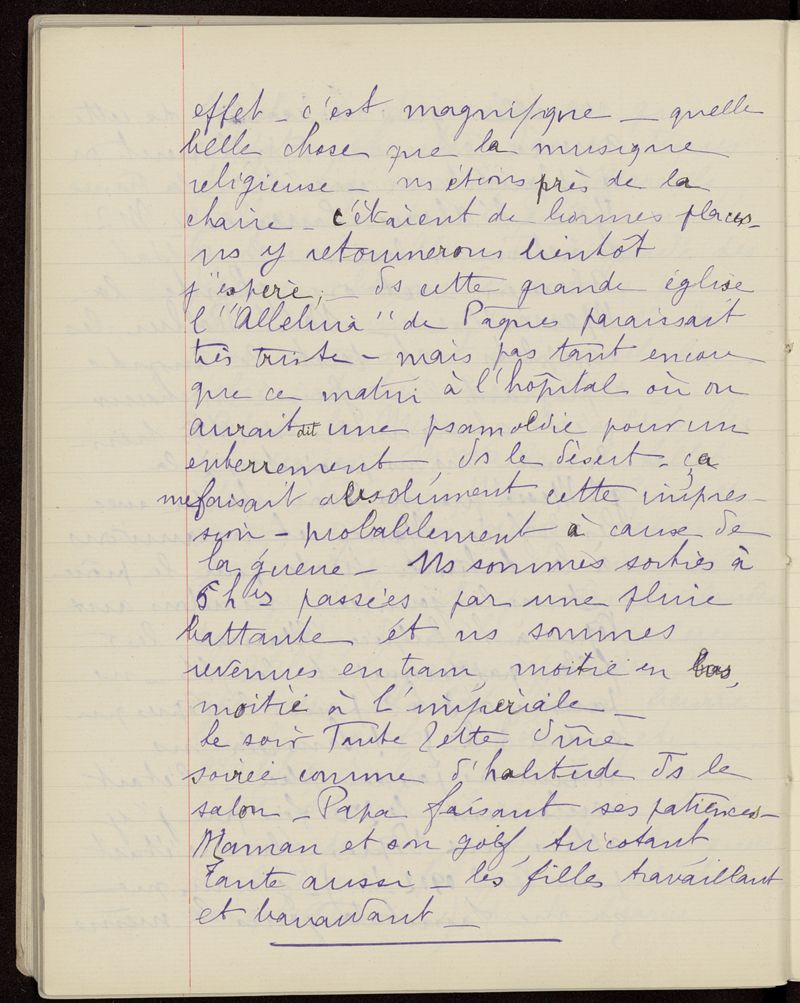 effet - c'est magnifique - quelle
belle chose que la musique
religieuse - ns étions près de la
chaire - c'étaient de bonnes places -
ns y retournerons bientôt
j'espère, - ds cette grande église
l'"Alleluia" de Pâques paraissait
très triste - mais pas tant encore
que ce matin à l'hôpital où on
aurait dit une psamoldie pour un
enterrement ds le désert - ça
me faisait absolument cette impres-
sion - probablement à cause de
la guerre - Ns sommes sorties à
6 hres passées par une pluie
battante et ns sommes
revenues en tram moitié en bas,
moitié à l'impériale -
Le soir Tante Zette dîne
soirée comme d'habitude ds le
salon - Papa faisant ses patiences -
Maman et son golf, tricotant
Tante aussi - les filles travaillant
et bavardant -